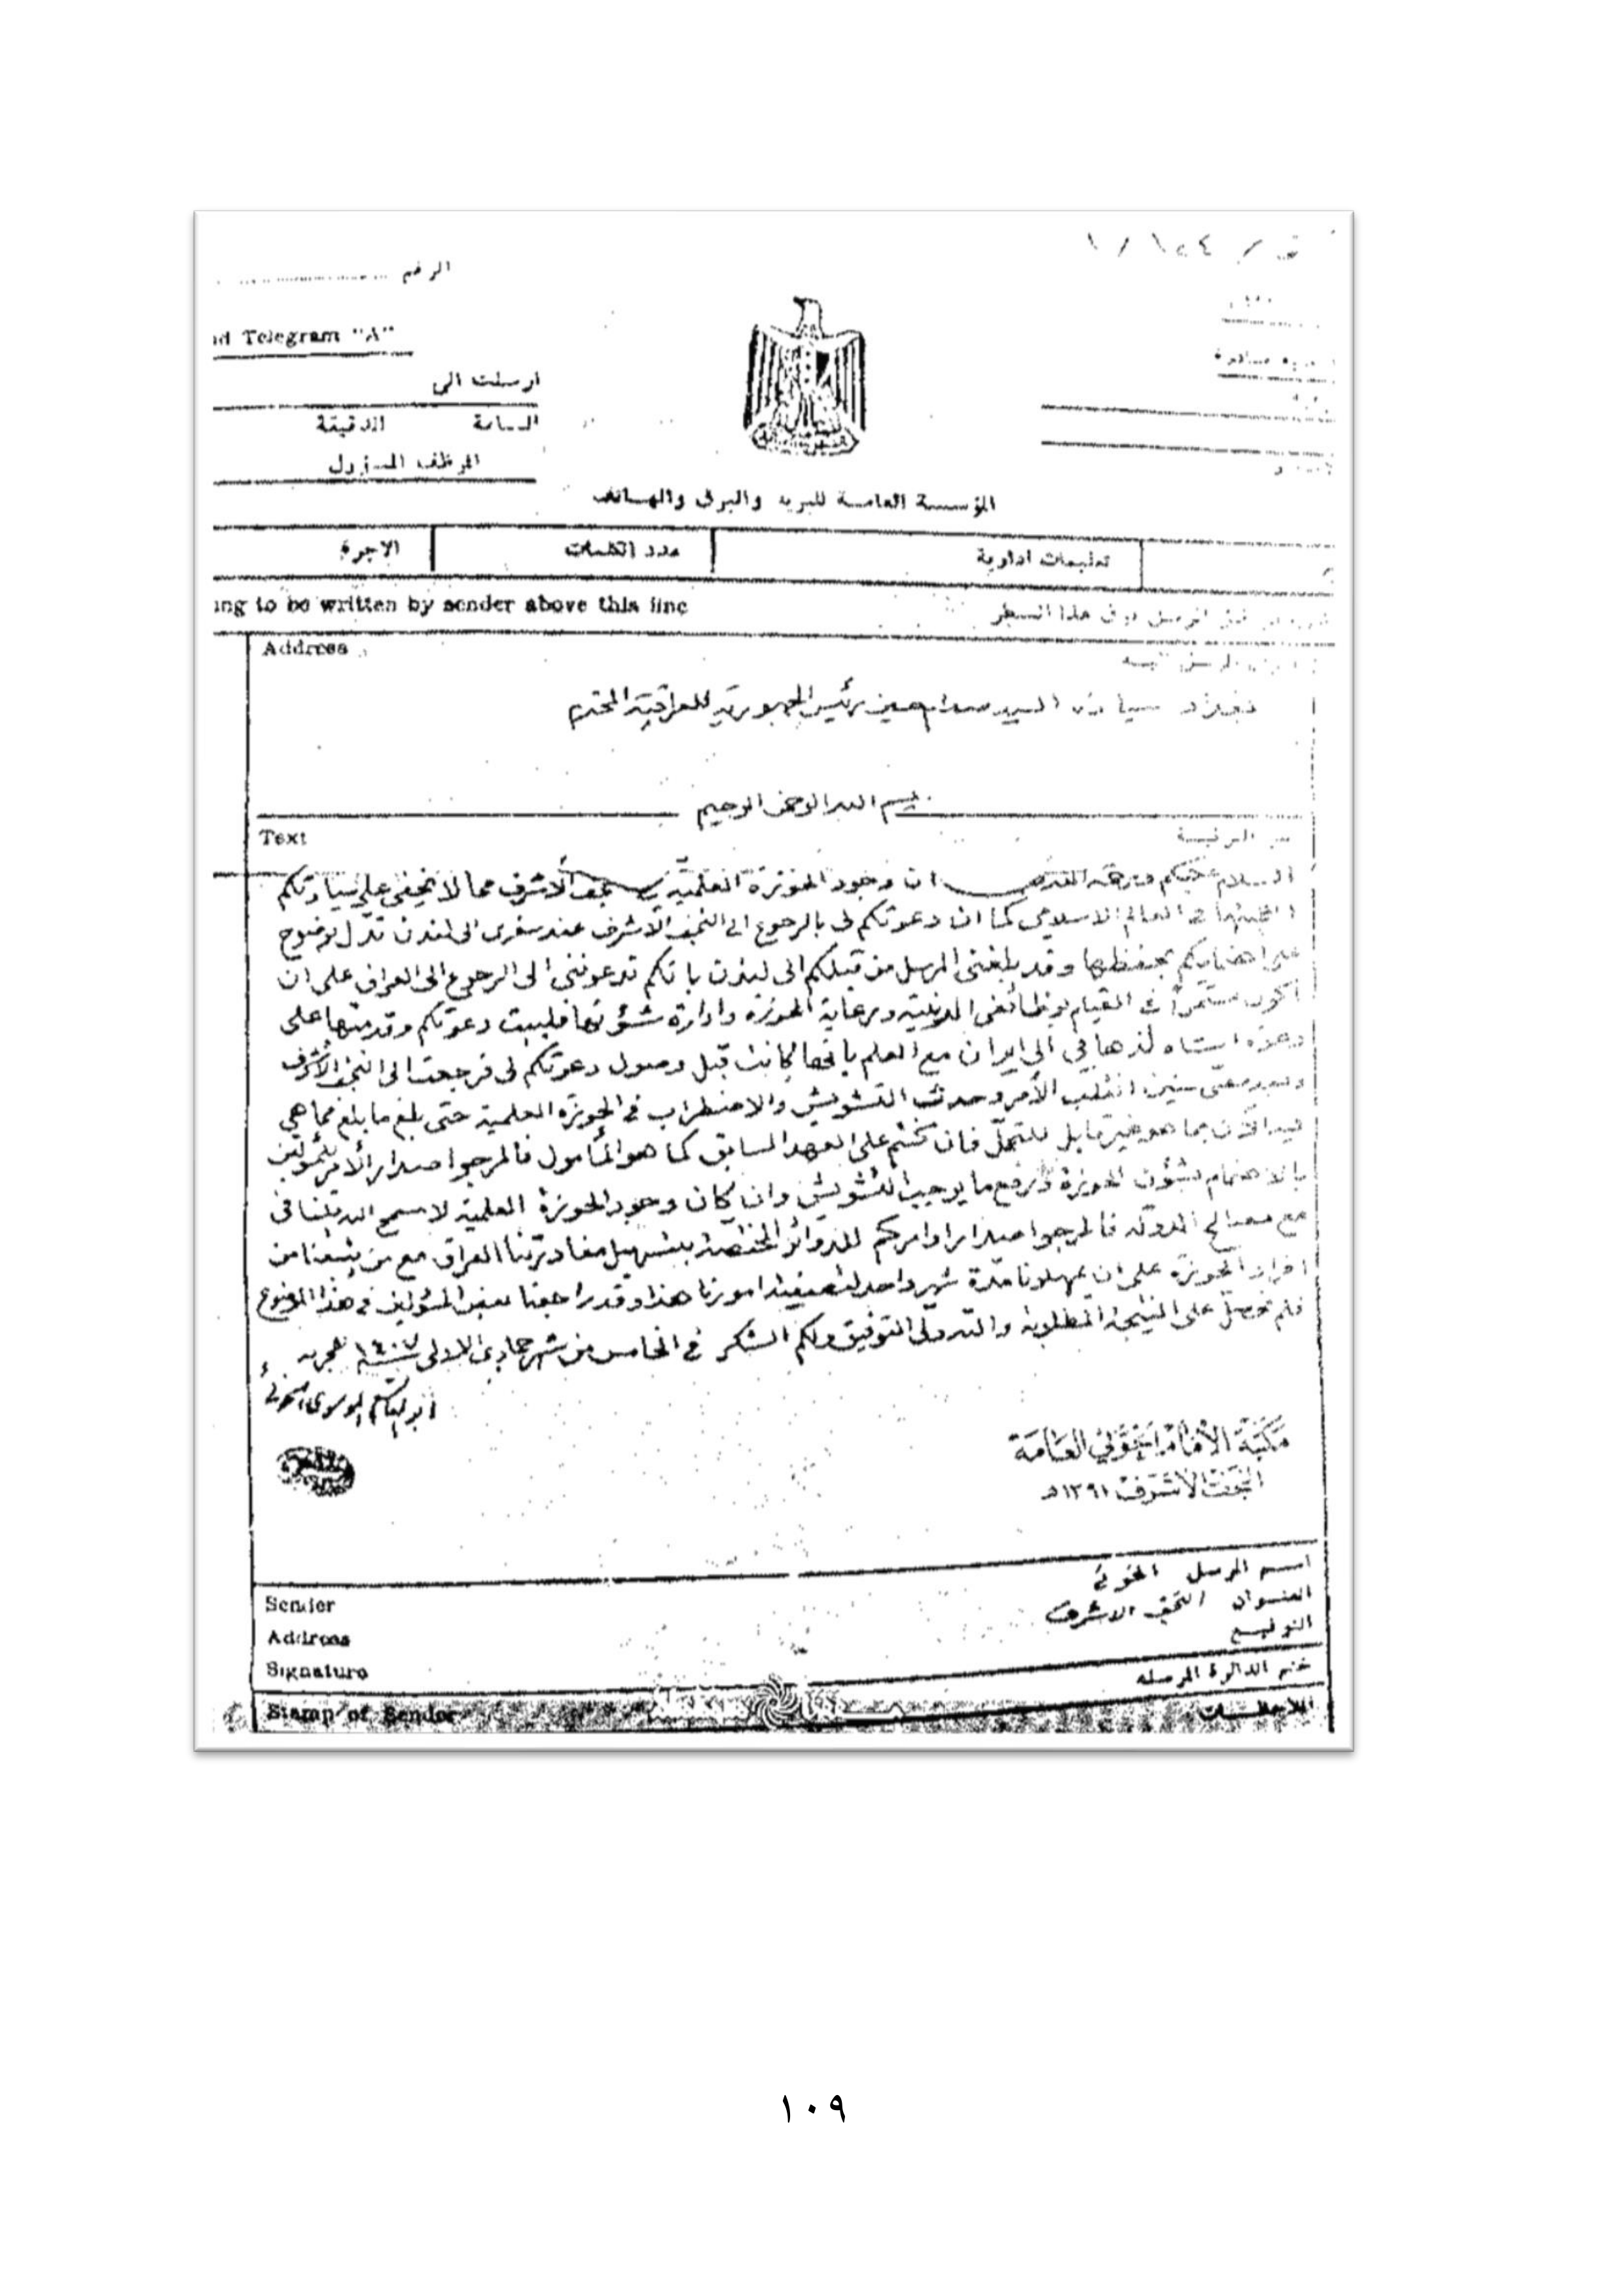 الرقم
Telegram "A"
ارسلت الى
الساعة الدقيقة
الموظف المسؤول
المؤسسة العامة للبريد والبرق والهاتف
تعليمات ادارية عدد الكلمات الاجرة
to be written by sender above this line
المرسل فوق هذا السطر
Address
سيادة السيد صدام حسين رئيس الجمهورية العراقية المحترم
بسم الله الرحمن الرحيم
Text
السلام عليكم ورحمة الله ان وجود الحوزة العلمية في نجف الأشرف مما لا يخفى على سيادتكم
اهميتها في العالم الاسلامي كما ان دعوتكم لي بالرجوع الى النجف الأشرف عند سفري الى لندن تدل بوضوح
على بحفظها وقد بلغني المرسل من قبلكم الى لندن بانكم تدعونني الى الرجوع الى العراق على ان
اكون مستمراً في القيام بوظائفي الدينية ورعاية الحوزة وادارة شؤونها فلبيت دعوتكم وقدمتها على
دعوة لذهابي الى ايران مع العلم بانها كانت قبل وصول دعوتكم لي فرجعت الى النجف الأشرف
وبعد سنين انقلب الأمر وحدث التشويش والاضطراب في الحوزة العلمية حتى بلغ ما بلغ مما هي
فيه الآن بما هو غير قابل للتحمل فان كنتم على العهد السابق كما هو المأمول فالمرجو اصدار الأمر
بالاهتمام بشؤون الحوزة ورفع ما يوجب التشويش وان كان وجود الحوزة العلمية لا سمح الله
مع مصالح الدولة فالمرجو اصدار اوامركم للدوائر المختصة بتسهيل مغادرتنا العراق مع من من
افراد الحوزة على ان يمهلونا مدة شهر واحد لتصفية امورنا هذا وقد راجعنا بعض المسؤولين في هذا الموضوع
فلم نحصل على النتيجة المطلوبة والله ولي التوفيق ولكم الشكر في الخامس من شهر جمادى الاولى سنة ١٤٠٧ هجرية
أبو القاسم الموسوي الخوئي
مكتبة الإمام الخوئي العامة
النجف الأشرف ١٣٩١هـ
Sender اسم المرسل الخوئي
Address العنوان النجف الاشرف
Signature التوقيع
ختم الدائرة المرسلة
Stamp of Sender الملاحظات
١٠٩